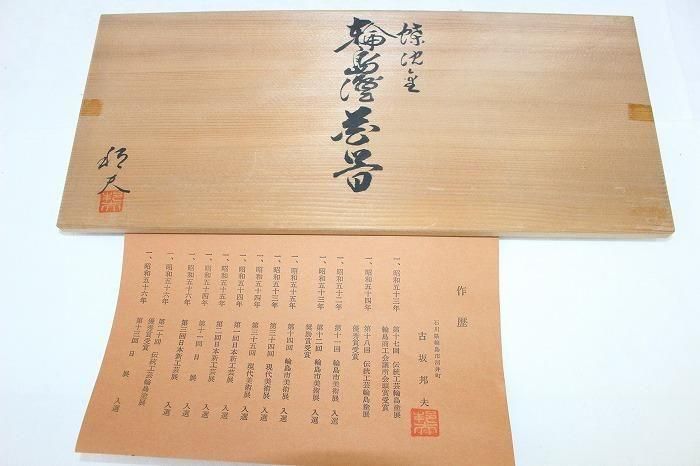 蝶沈金
輪島塗花器
作歴
石川県輪島市河井町
古坂邦夫
一、昭和五十三年 第十七回 伝統工芸輪島塗展
輪島商工会議所会頭賞受賞
一、昭和五十四年 第十八回 伝統工芸輪島塗展
優秀賞受賞
一、昭和五十二年 第十一回 輪島市美術展 入選
一、昭和五十三年 第十二回 輪島市美術展
奨励賞受賞
一、昭和五十五年 第十四回 輪島市美術展 入選
一、昭和五十三年 第三十四回 現代美術展 入選
一、昭和五十四年 第三十五回 現代美術展 入選
一、昭和五十四年 第二回日本新工芸展 入選
一、昭和五十五年 第二回日本新工芸展 入選
一、昭和五十四年 第十一回 日展 入選
一、昭和五十六年 第三回日本新工芸展 入選
一、昭和五十六年 第二十回 伝統工芸輪島塗展
優秀賞受賞
一、昭和五十六年 第十三回 日展 入選